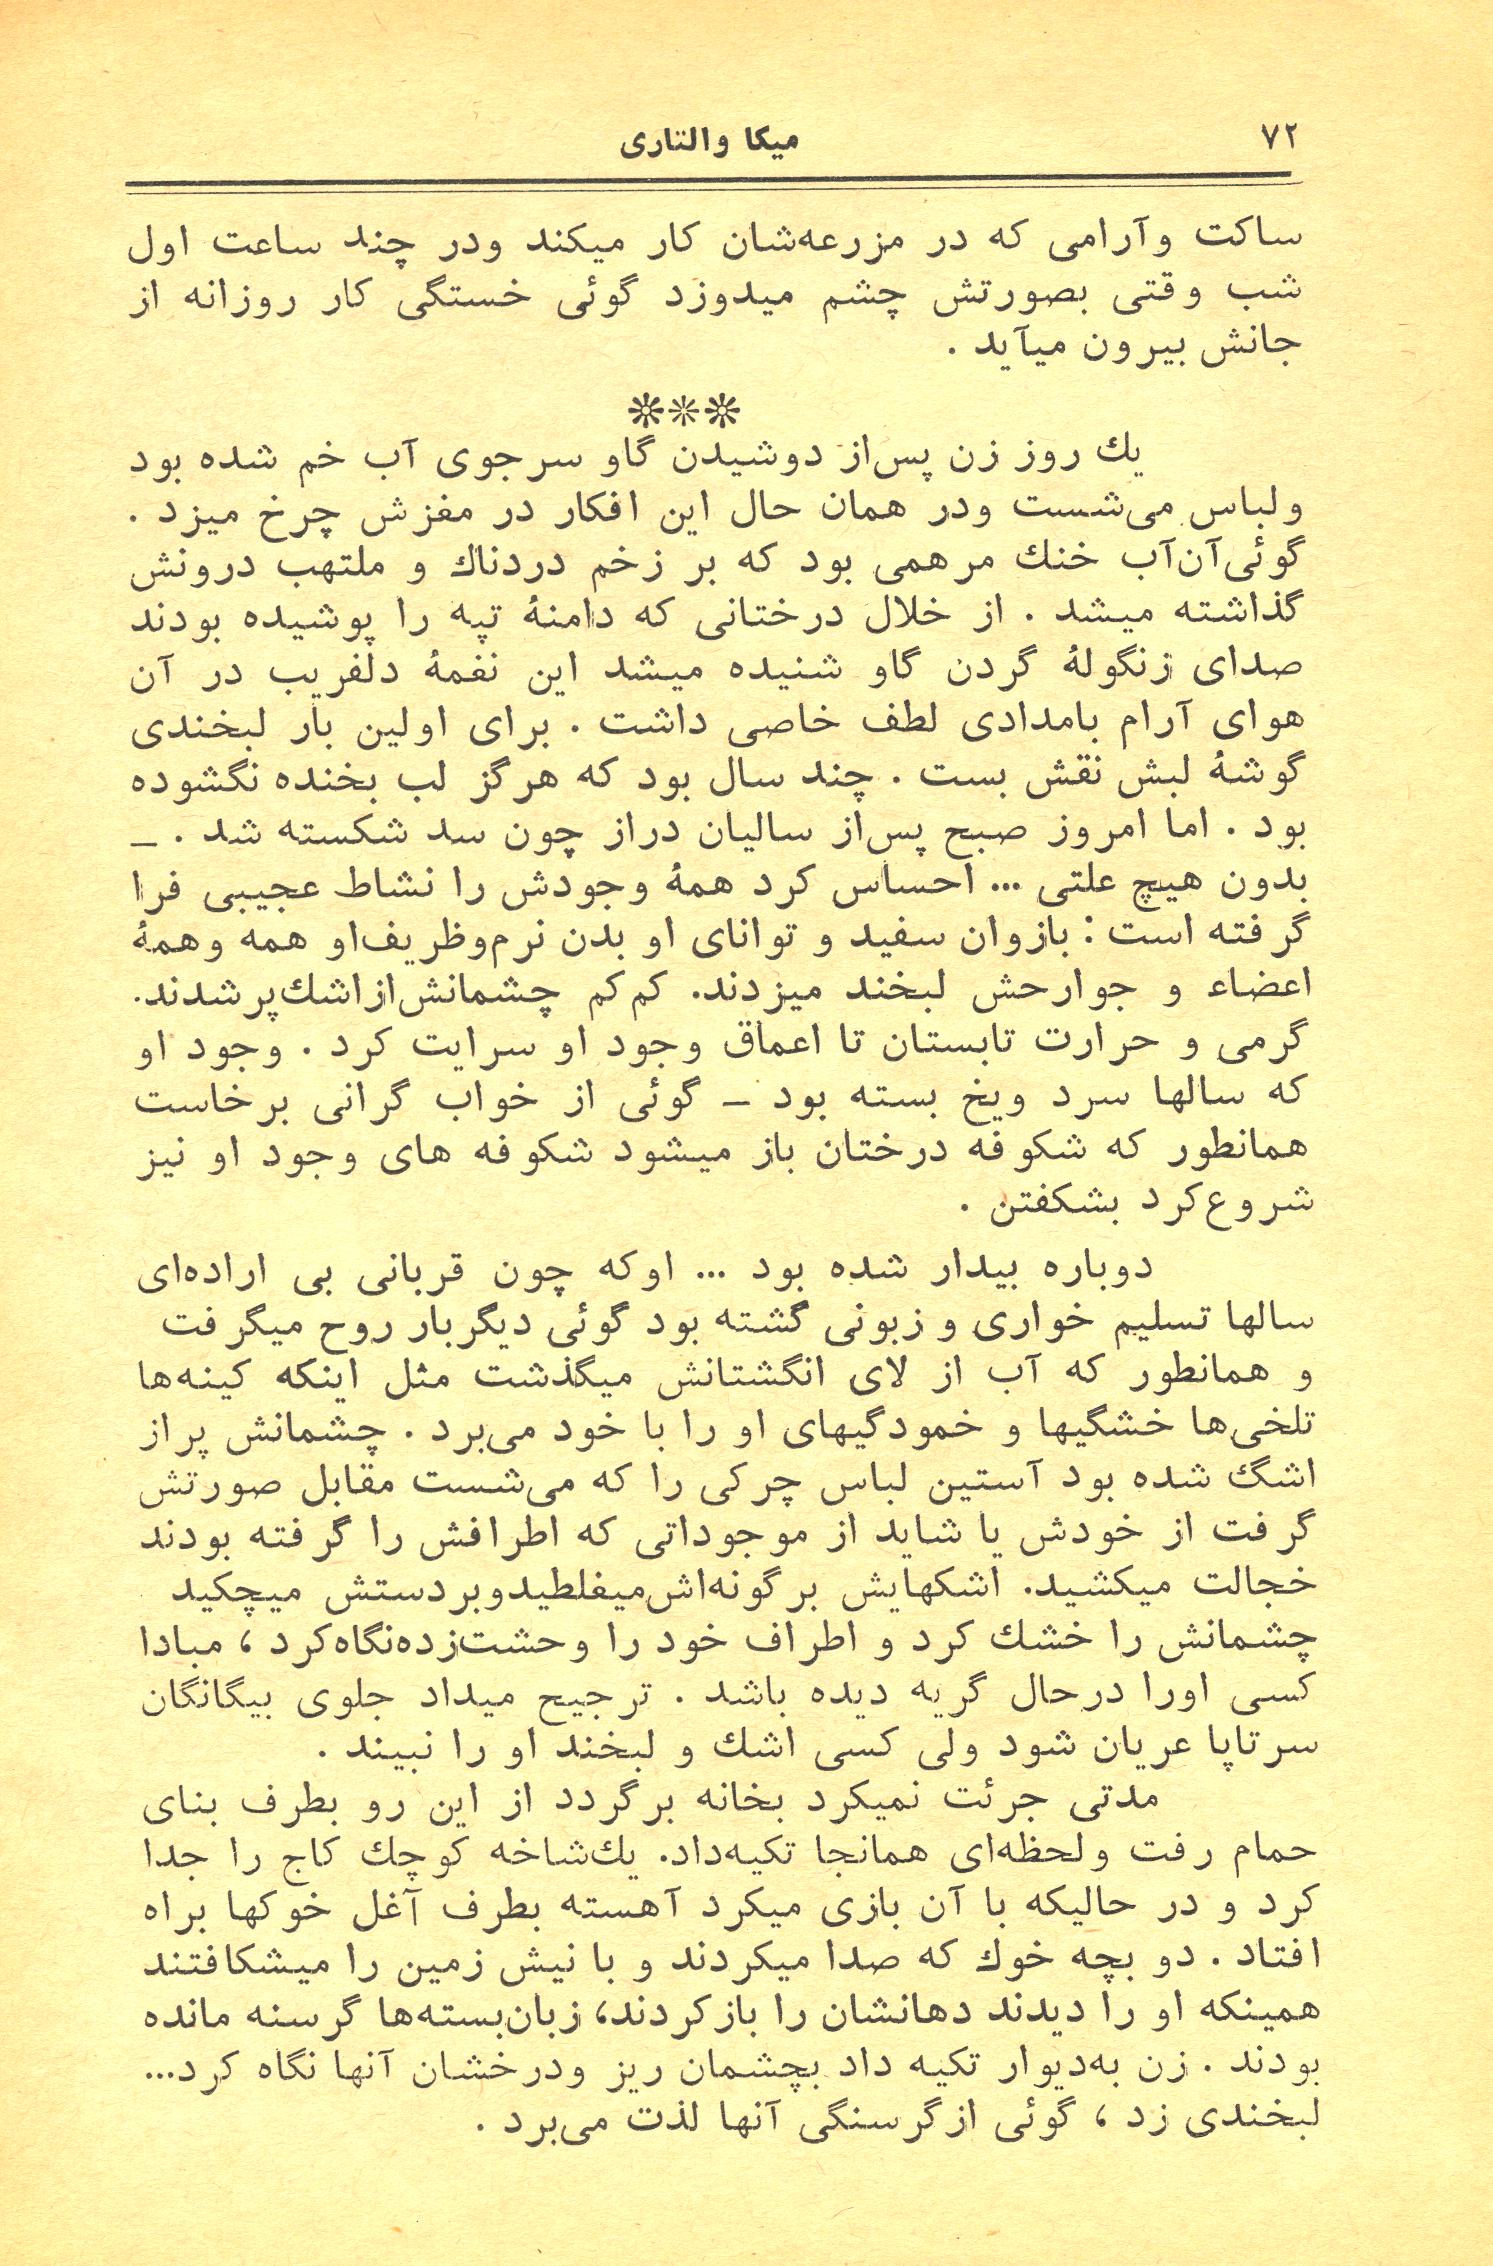 ۷۲
میکا والتاری
ساکت وآرامی که در مزرعه‌شان کار میکند ودر چند ساعت اول
شب وقتی بصورتش چشم میدوزد گوئی خستگی کار روزانه از
جانش بیرون میآید .
***
یك روز زن پس‌از دوشیدن گاو سرجوی آب خم شده بود
ولباس می‌شست ودر همان حال این افکار در مغزش چرخ میزد .
گوئی‌آن‌آب خنك مرهمی بود که بر زخم دردناك و ملتهب درونش
گذاشته میشد . از خلال درختانی که دامنهٔ تپه را پوشیده بودند
صدای زنگولهٔ گردن گاو شنیده میشد این نغمهٔ دلفریب در آن
هوای آرام بامدادی لطف خاصی داشت . برای اولین بار لبخندی
گوشهٔ لبش نقش بست . چند سال بود که هرگز لب بخنده نگشوده
بود . اما امروز صبح پس‌از سالیان دراز چون سد شکسته شد . ـ
بدون هیچ علتی ... احساس کرد همهٔ وجودش را نشاط عجیبی فرا
گرفته است : بازوان سفید و توانای او بدن نرم‌وظریف‌او همه وهمهٔ
اعضاء و جوارحش لبخند میزدند. کم‌کم چشمانش‌ازاشك‌پرشدند.
گرمی و حرارت تابستان تا اعماق وجود او سرایت کرد . وجود او
که سالها سرد ویخ بسته بود ـ گوئی از خواب گرانی برخاست
همانطور که شکوفه درختان باز میشود شکوفه های وجود او نیز
شروع‌کرد بشکفتن .
دوباره بیدار شده بود ... اوکه چون قربانی بی اراده‌ای
سالها تسلیم خواری و زبونی گشته بود گوئی دیگربار روح میگرفت
و همانطور که آب از لای انگشتانش میگذشت مثل اینکه کینه‌ها
تلخی‌ها خشگیها و خمودگیهای او را با خود می‌برد . چشمانش پراز
اشگ شده بود آستین لباس چرکی را که می‌شست مقابل صورتش
گرفت از خودش یا شاید از موجوداتی که اطرافش را گرفته بودند
خجالت میکشید. اشکهایش برگونه‌اش‌میغلطیدوبردستش میچکید
چشمانش را خشك کرد و اطراف خود را وحشت‌زده‌نگاه‌کرد ، مبادا
کسی اورا درحال گریه دیده باشد . ترجیح میداد جلوی بیگانگان
سرتاپا عریان شود ولی کسی اشك و لبخند او را نبیند .
مدتی جرئت نمیکرد بخانه برگردد از این رو بطرف بنای
حمام رفت ولحظه‌ای همانجا تکیه‌داد. یك‌شاخه کوچك کاج را جدا
کرد و در حالیکه با آن بازی میکرد آهسته بطرف آغل خوکها براه
افتاد . دو بچه خوك که صدا میکردند و با نیش زمین را میشکافتند
همینکه او را دیدند دهانشان را بازکردند، زبان‌بسته‌ها گرسنه مانده
بودند . زن به‌دیوار تکیه داد بچشمان ریز ودرخشان آنها نگاه کرد...
لبخندی زد ، گوئی ازگرسنگی آنها لذت می‌برد .